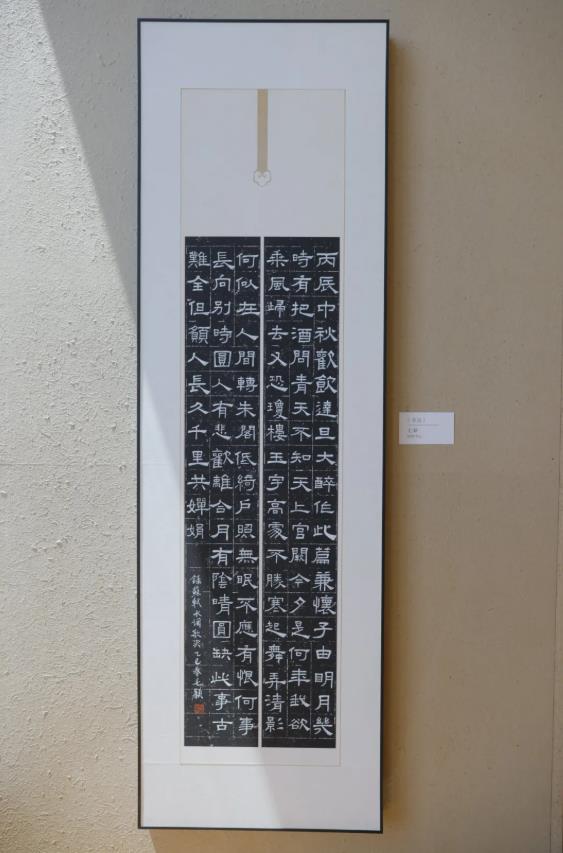 丙辰中秋歡飲達旦大醉作此篇兼懷子由明月幾
時有把酒問青天不知天上宮闕今夕是何年我欲
乘風歸去又恐瓊樓玉宇高處不勝寒起舞弄清影
何似在人間轉朱閣低綺戶照無眠不應有恨何事
長向別時圓人有悲歡離合月有陰晴圓缺此事古
難全但願人長久千里共嬋娟
錄蘇軾水調歌头乙巳春